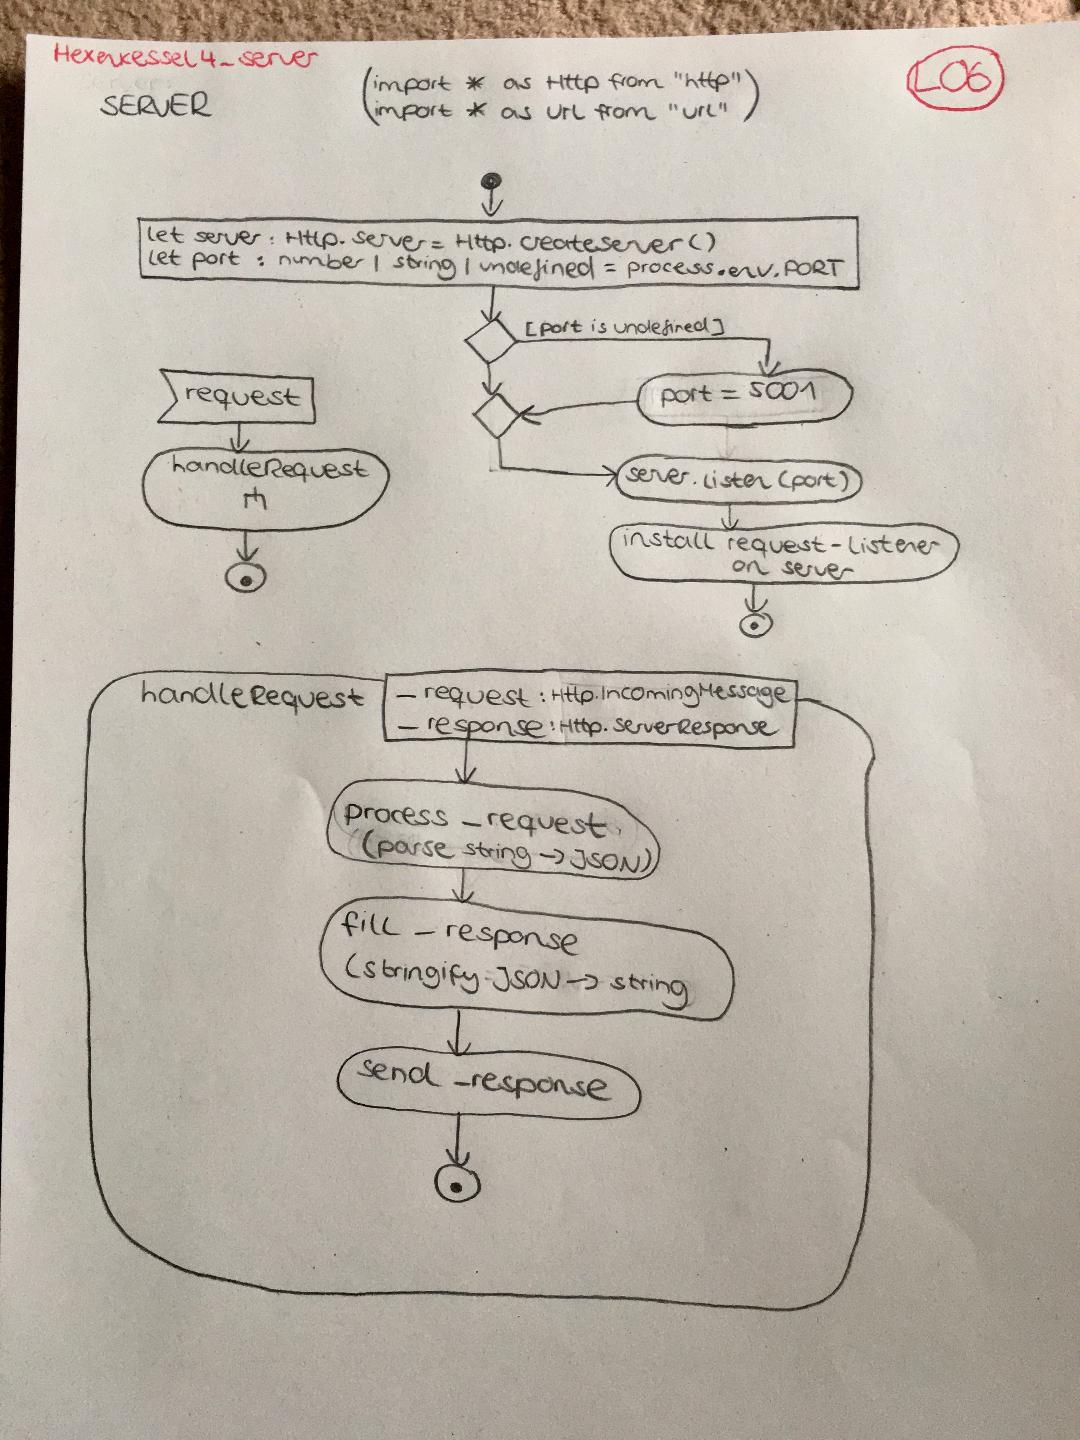 Hexenkessel4_server
L06
SERVER
(import * as Http from "http")
(import * as Url from "url")
let server : Http.Server = Http.createServer()
let port : number | string | undefined = process.env.PORT
[port is undefined]
port = 5001
request
handleRequest
server.listen(port)
install request-listener
on server
handleRequest
– request : Http.IncomingMessage
– response : Http.ServerResponse
process _request
(parse string -> JSON)
fill _response
(stringify JSON -> string
send _response